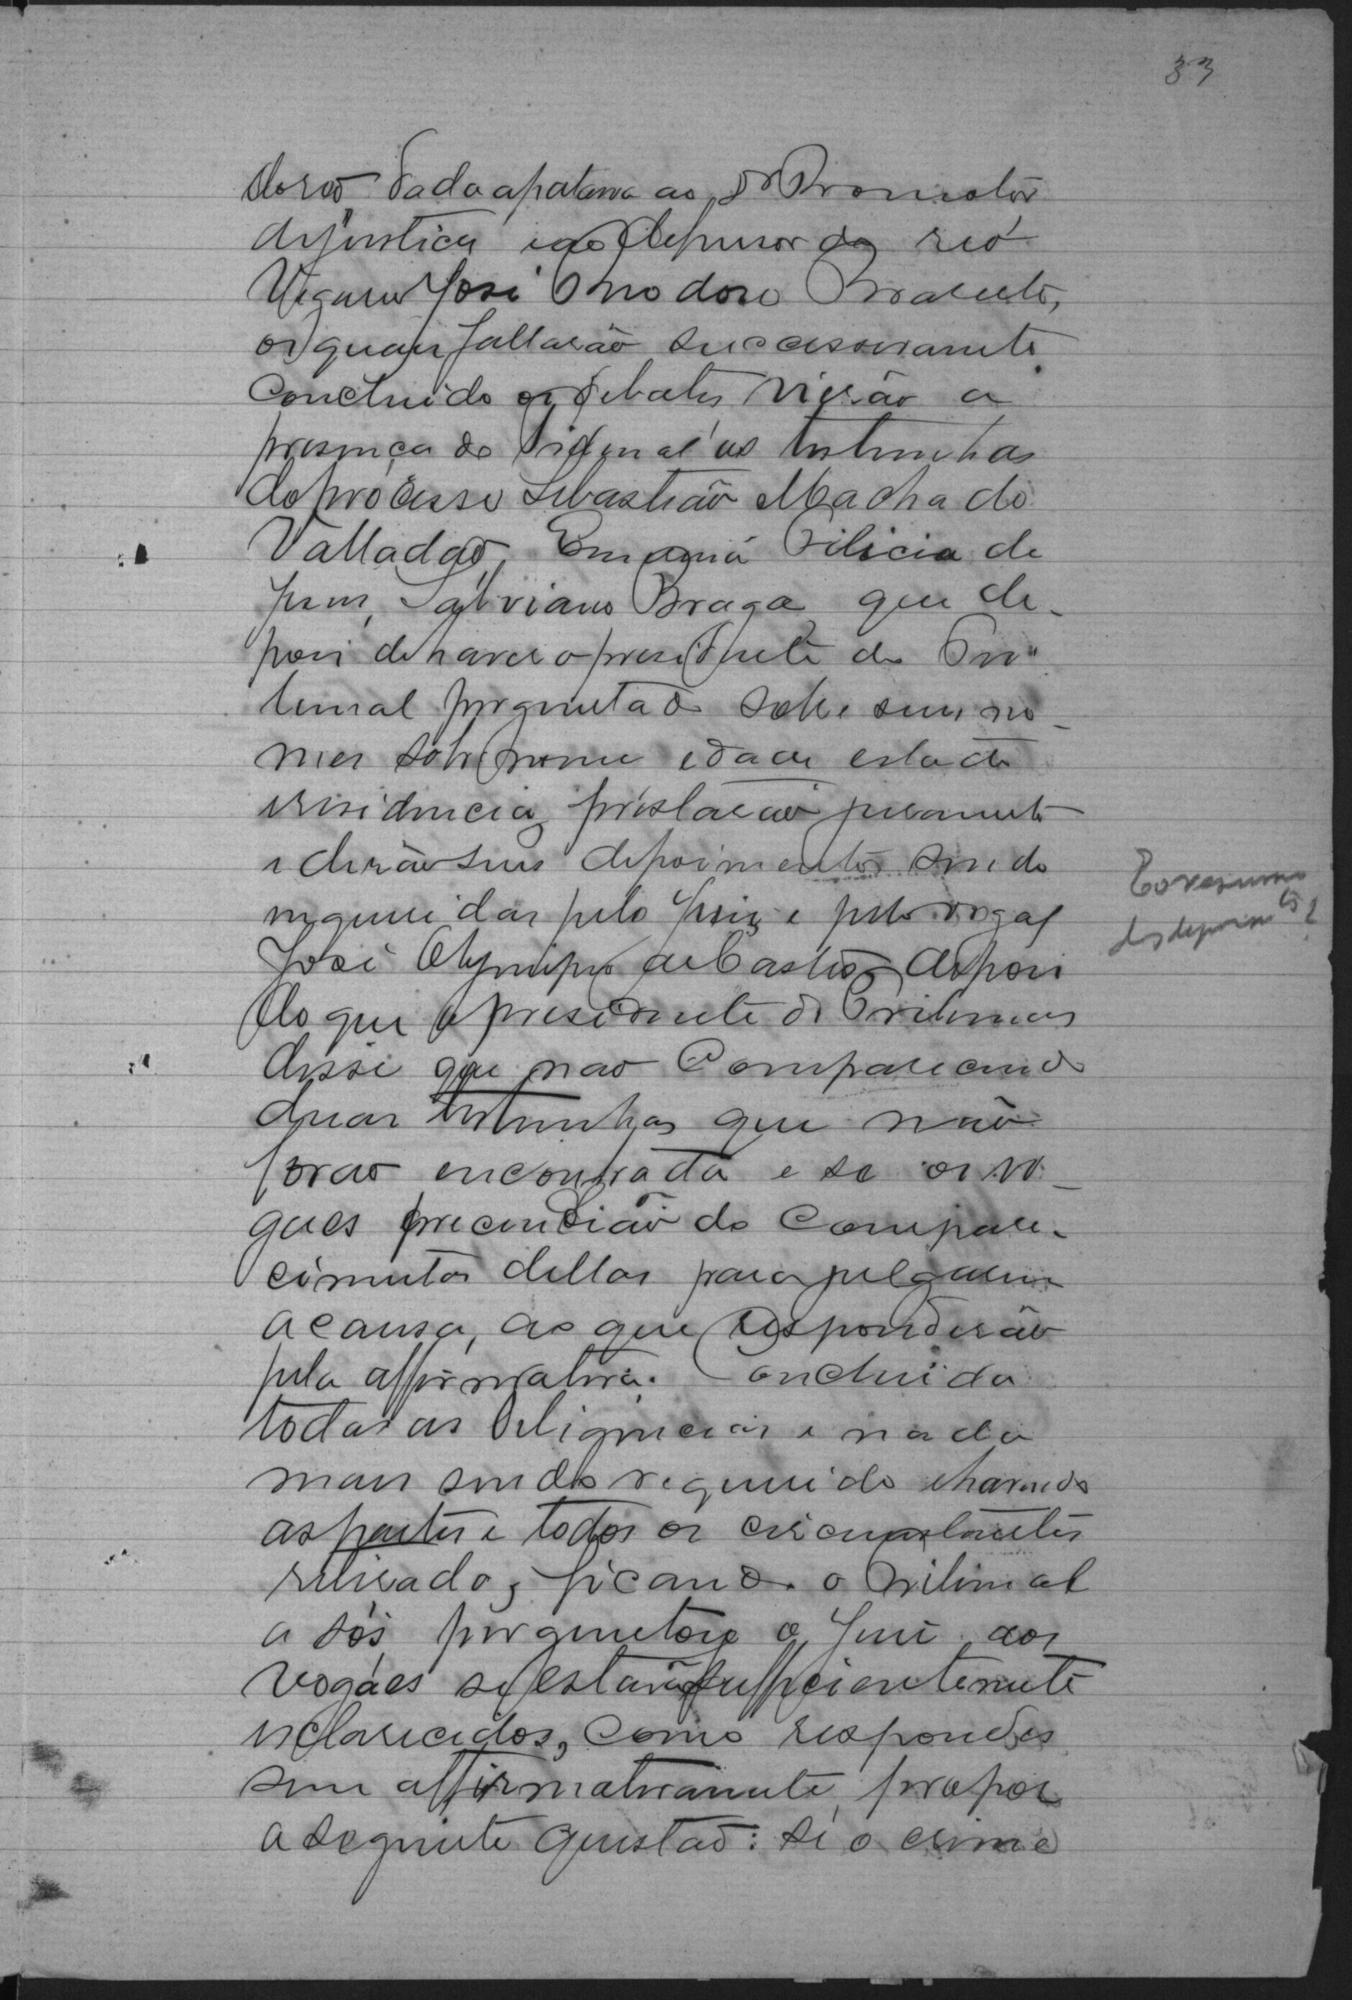 33
do reo dada a palavra ao Dr Promotor
de justiça e ao defensor do reo
Vigario José Theodoro Brasileto,
os quaes fallarão successivamente
concluido os debates vierão a
presença do Tribunal as testemunhas
do processo Sebastião Machado
Valladão, Felicia de
Jesus, Salviano Braga, que de-
pois de haver o presidente do Tri-
bunal perguntado sobre seus no-
mes sobrenome edade estado
e residencia, prestarão juramento
e derão seus depoimentos sendo
inqueridas pelo Juiz e pelo vogal
José Olympio de Castro, depois
do que o presidente do Tribunal
disse que não comparecendo
duas testemunhas que não
forão encontrada e se os vo-
gaes precindião do compare-
cimento dellas para julgarem
a causa, ao que responderão
pela affirmativa. Concluida
todas as deligencias e nada
mais sendo requerido
as partes e todos os circumstantes
retirado, ficando o Tribunal
a sós perguntou o Juiz aos
vogáes se estavão sufficientemente
esclarecidos, como respondes
sem affirmativamente, propos
a seguinte questão: se o crime
E o resumo
dos depoimentos?